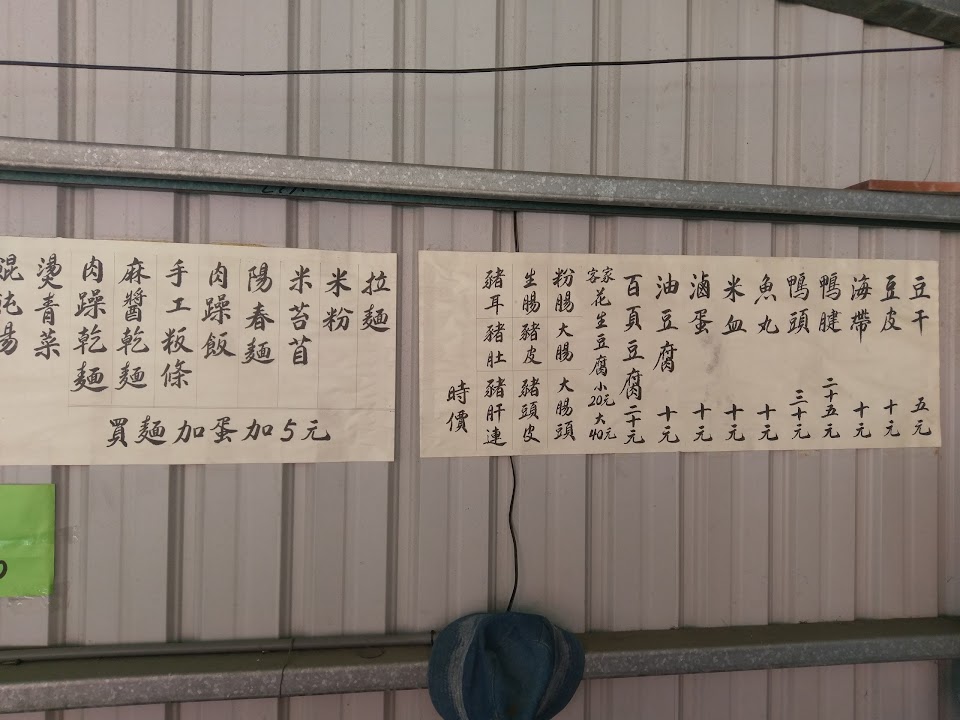 豆干 五元
豆皮 十元
海帶 十元
鴨腱 二十五元
鴨頭 三十元
魚丸 十元
米血 十元
滷蛋 十元
油豆腐 十元
百頁豆腐 二十元
客家花生豆腐 小20元 大40元
粉腸 大腸 大腸頭
生腸 豬皮 豬頭皮
豬耳 豬肚 豬肝連
時價
拉麵
米粉
米苔苜
陽春麵
肉躁飯
手工粄條
麻醬乾麵
肉躁乾麵
燙青菜
餛飩湯
買麵加蛋加5元